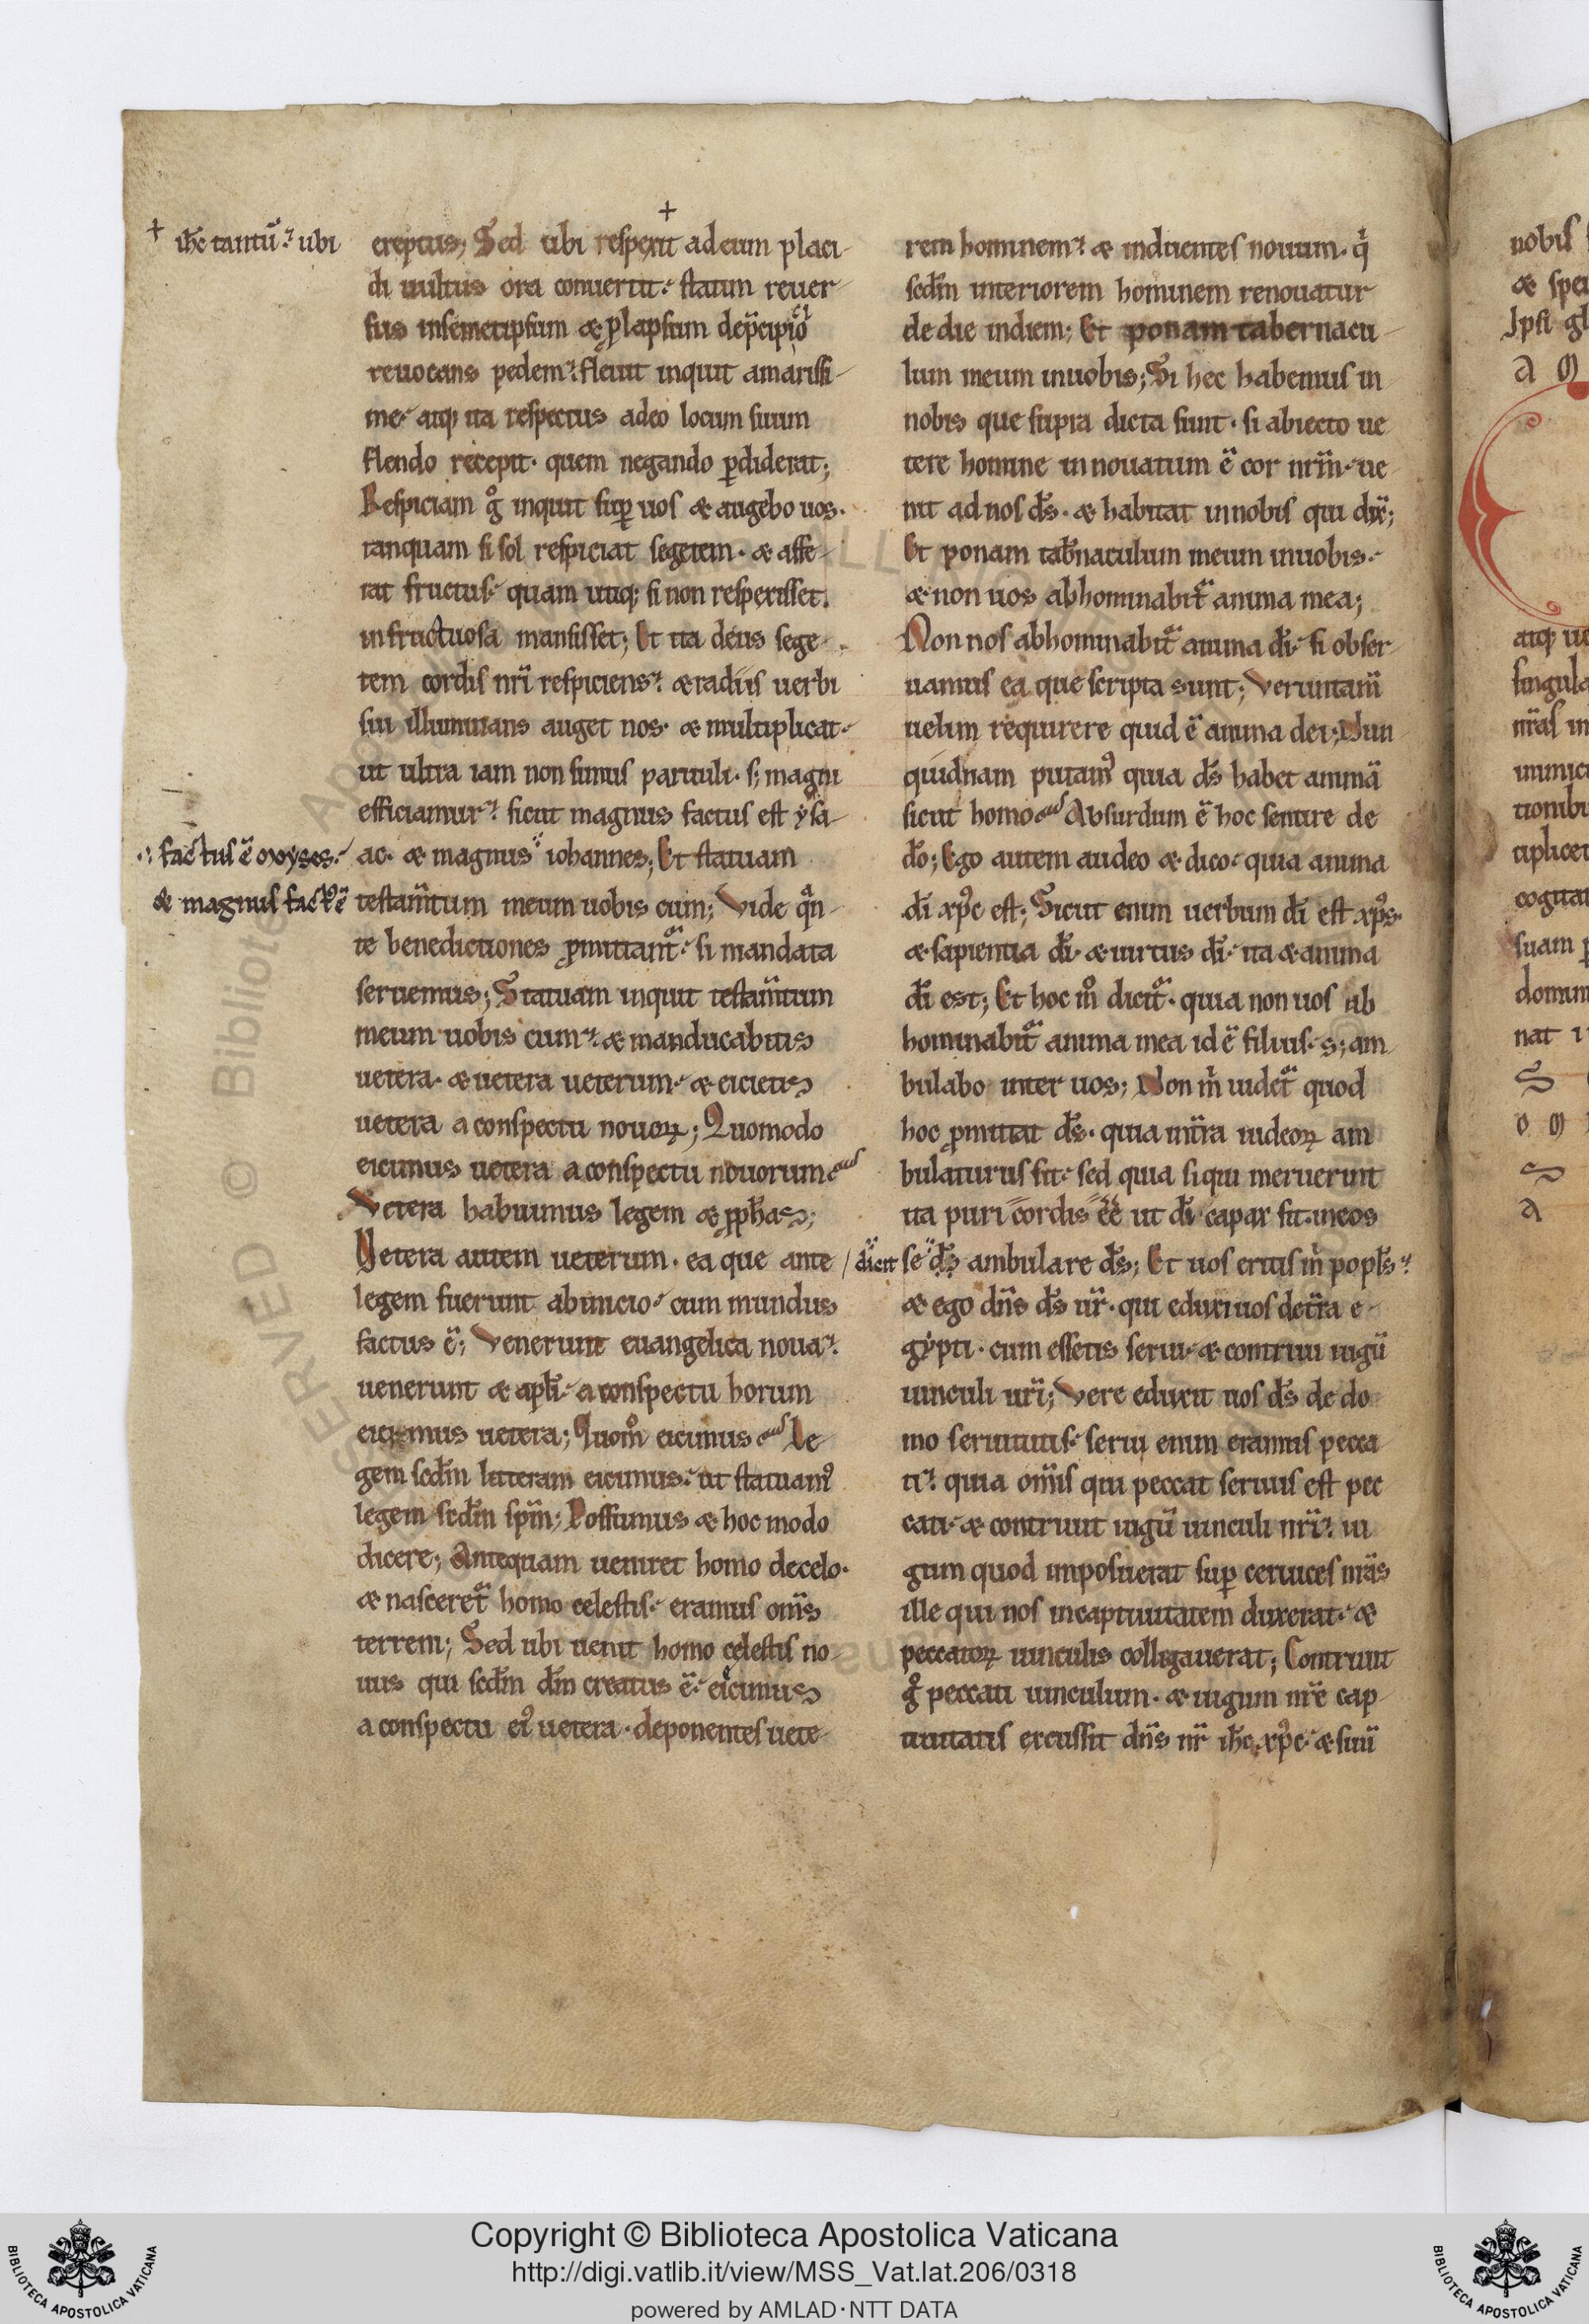 + ih̅c tantu̅ ubi
ereptus; Sed ubi respexit ad eum placi-
di uultus ora conuertit. statim reuer-
sus insemetipsum & p̱lapsum dep̅cipitio
reuocans pedem. fleuit inquit amarissi-
me. atq; ita respectus adeo locum suum
flendo recepit. quem negando p̱diderat;
Respiciam gͦ inquit sup̱ uos & augebo uos.
tanquam si sol respiciat segetem. & affe-
rat fructus. quam utiq; si non respexisset.
infructuosa mansisset; Et ita deus sege-
tem cordis nr̅i respiciens. & radiis uerbi
sui illuminans auget nos. & multiplicat.
ut ultra iam non simus paruuli. s; magni
efficiamur. sicut magnus factus est ysa-
∴ factus e̅ oxyses.
ac. & magnus iohannes; Et statuam
& magnus factꝰ e̅
testam̅tum meum uobis cum; Vide qᵃn-
te benedictiones p̱mittant᷑. si mandata
seruemus; Statuam inquit testam̅tum
meum uobis cum. & manducabitis
uetera. & uetera ueterum. & eicietis
uetera a conspectu nouoꝝ; Quomodo
eicimus uetera a conspectu nouorum
Vetera habuimus legem & p̱ph̅as;
Vetera autem ueterum. ea que ante
legem fuerunt ab inicio. cum mundus
factus e̅; Venerunt euangelica noua.
uenerunt & apl̅i. a conspectu horum
eicimus uetera; Quom̊ eicimus Le-
gem scd̅m litteram eicimus. ut statuamꝰ
legem scd̅m sp̅m; Possumus & hoc modo
dicere; Antequam ueniret homo decelo.
& nasceret᷑ homo celestis. eramus om̅s
terreni; Sed ubi uenit homo celestis no-
uus qui scd̅m dm̅ creatus e̅. eicimus
a conspectu eiꝰ uetera. deponentes uete-
rem hominem. & induentes nouum. qⁱ
scd̅m interiorem hominem renouatur
de die indiem; Et ponam tabernacu-
lum meum inuobis; Si hec habemus in
nobis que supra dicta sunt. si abiecto ue
tere homine innouatum e̅ cor nr̅m. ue-
nit ad nos ds̅. & habitat innobis qui dix̅;
Et ponam tab̅naculum meum inuobis.
& non uos abhominabit᷑ anima mea;
Non nos abhominabit᷑ anima di̅. si obser-
uamus ea que scripta sunt; Veruntam̅
uelim requirere quid e̅ anima dei; Nun
quidnam putamꝰ quia ds̅ habet anima̅
sicut homo Absurdum e̅ hoc sentire de
do̅; Ego autem audeo & dico. quia anima
di̅ xp̅c est; Sicut enim uerbum di̅ est xp̅s.
& sapientia di̅. & uirtus di̅. ita & anima
di̅ est; Et hoc m̊ dicit᷑. quia non uos ab
hominabit᷑ anima mea id e̅ filius. s; am-
bulabo inter uos; Non mⁱ uidet᷑ quod
hoc p̱mittat ds̅. quia intra iudeoꝝ am
bulaturus sit. sed quia siqui meruerint
ita puri cordis ee̅ ut di̅ capax sit. ineos
/ dicit se ds̅ ambulare ds̅; Et uos eritis mⁱ popls̅.
& ego dn̅s ds̅ ur̅. qui eduxi uos de tr̅a e-
gypti. cum essetis serui. & contriui iugu̅
uinculi ur̅i; Vere eduxit nos ds̅ de do
mo seruitutis. serui enim eramus pecca-
ti. quia om̅is qui peccat seruus est pec
cati. & contriuit iugu̅ uinculi nr̅i. iu
gum quod imposuerat sup̱ ceruices nr̅as
ille qui nos incaptiuitatem duxerat. &
peccatoꝝ uinculis colligauerat; Contriuit
gͦ peccati uinculum. & iugum nr̅e cap-
tiuitatis excussit dn̅s nr̅ ih̅c xp̅c. & suu̅
nobis
& spe
Ipsi gl
A M
atq; ue
singula
nr̅as in
inimici
tionibu
tiplicet
cogita
suam p
domin
nat i
S
O M
S
A
Copyright © Biblioteca Apostolica Vaticana
http://digi.vatlib.it/view/MSS_Vat.lat.206/0318
powered by AMLAD·NTT DATA
BIBLIOTECA APOSTOLICA VATICANA
BIBLIOTECA APOSTOLICA VATICANA